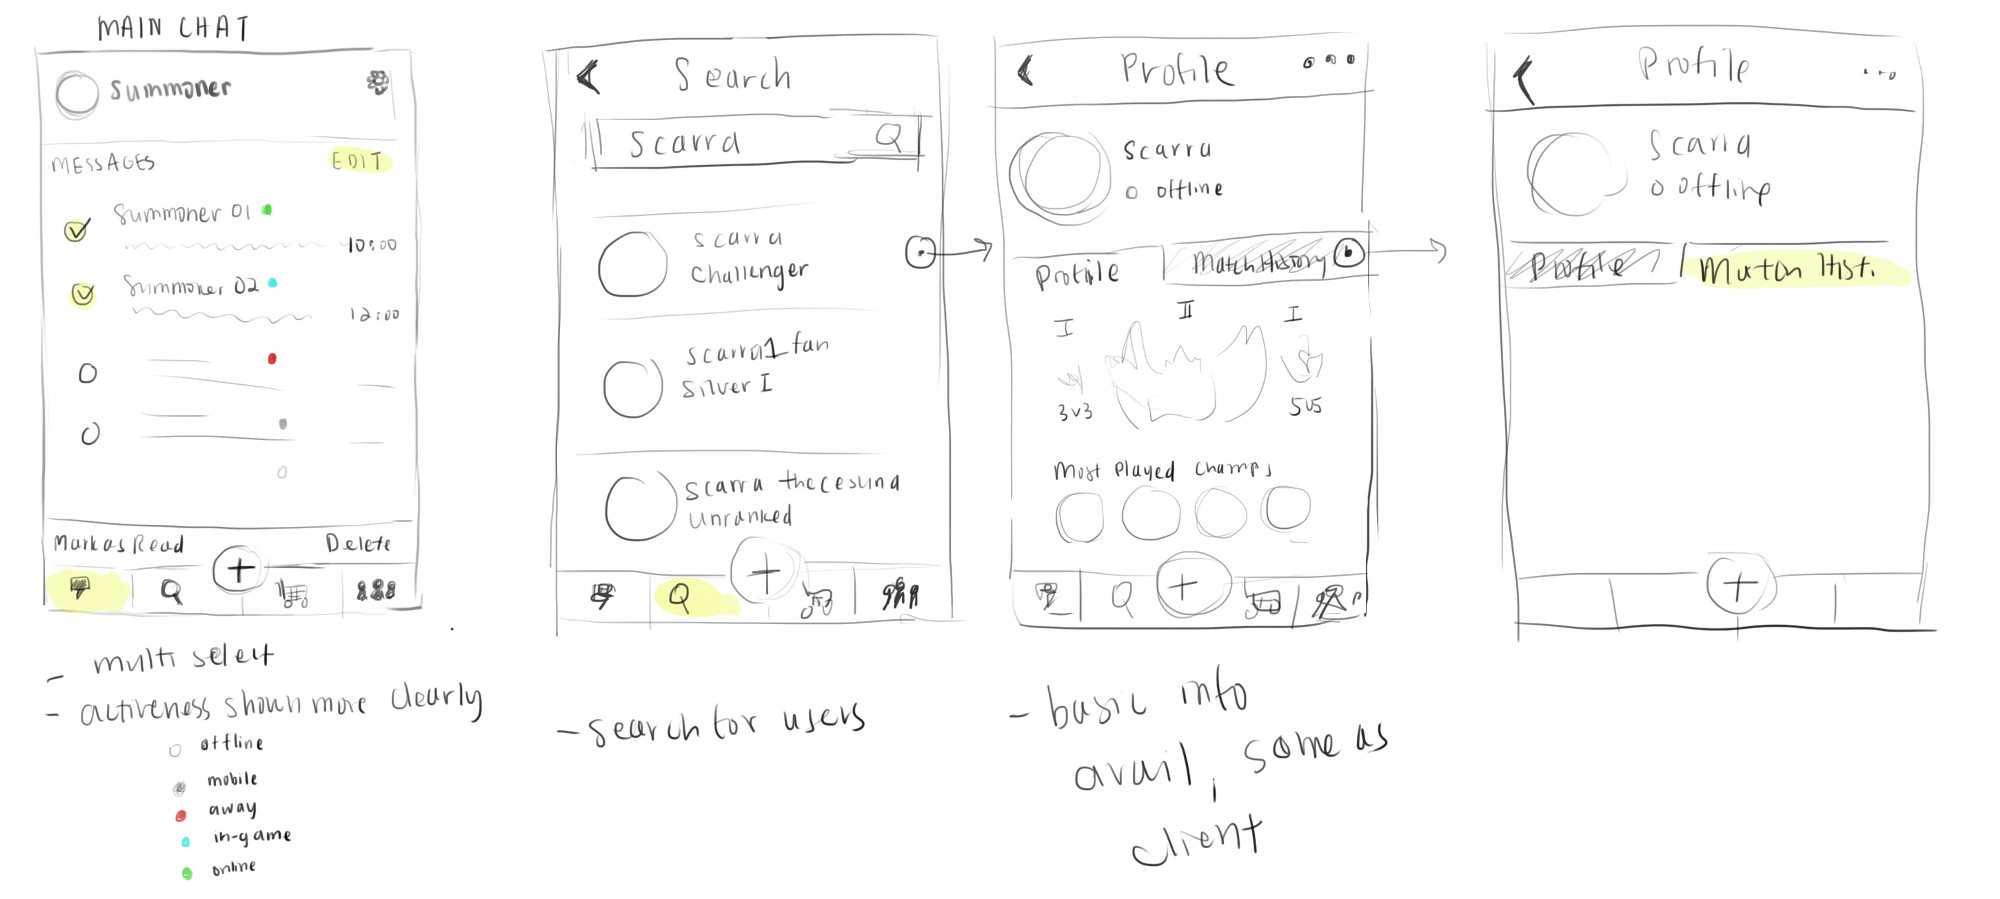 MAIN CHAT
Summoner
MESSAGES EDIT
Summoner 01
10:00
Summoner 02
12:00
Mark as Read Delete
- multi select
- activeness shown more clearly
offline
mobile
away
in-game
online
Search
Scarra
scarra
challenger
scarra1 fan
silver I
scarra
unranked
- search for users
Profile
scarra
offline
Profile Match History
I II I
3v3 5v5
Most Played Champs
- basic info
avail, some as
client
Profile
Scarra
offline
Profile Match Hist.